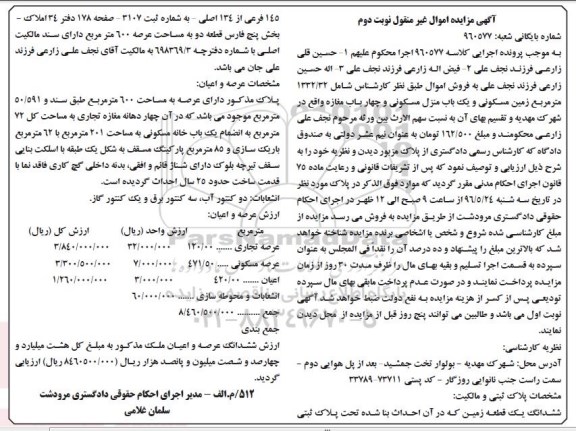 آگهی مزایده اموال غیر منقول نوبت دوم
شماره بایگانی شعبه: ۹۶۰۵۷۷
به موجب پرونده اجرایی کلاسه ۹۶۰۵۷۷ اجرا محکوم علیهم ۱- حسین قلی
زارعی فرزند نجف علی ۲- فیض اله زارعی فرزند نجف علی ۳- اله حسین
زارعی فرزند نجف علی به فروش اموال طبق نظر کارشناس شامل ۱۳۳۲/۳۲
مترمربع زمین مسکونی و یک باب منزل مسکونی و چهار باب مغازه واقع در
شهرک مهدیه و تقسیم بهای آن به نسبت سهم الارث بین ورثه مرحوم نجف علی
زارعی محکومند و مبلغ ۱۶۲/۵۰۰ تومان به عنوان نیم عشر دولتی به صندوق
دادگاه که کارشناس رسمی دادگستری از پلاک مزبور دیدن و نظریه خود را به
شرح ذیل ارزیابی و توصیف نمود که پس از تشریفات قانونی و رعایت ماده ۷۵
قانون اجرای احکام مدنی مقرر گردید که موارد فوق الذکر در پلاک مورد نظر
در تاریخ سه شنبه ۹۶/۵/۲۴ از ساعت ۹ صبح الی ۱۲ ظهر در اجرای احکام
حقوقی دادگستری مرودشت از طریق مزایده به فروش می رسد مزایده از
مبلغ کارشناسی شده شروع و شخص یا اشخاصی برنده مزایده شناخته خواهد
شد که بالاترین مبلغ را پیشنهاد و ده درصد آن را نقدا فی المجلس به عنوان
سپرده به قسمت اجرا تسلیم و بقیه بهای مال را ظرف مدت ۳۰ روز از زمان
مزایده پرداخت نمایند و در صورت عدم پرداخت مابقی بهای مال سپرده
تودیعی پس از کسر از هزینه مزایده به نفع دولت ضبط خواهد شد آگهی
نوبت اول می باشد و طالبین می توانند پنج روز قبل از مزایده از محل دیدن
نمایند.
نظریه کارشناسی:
آدرس محل: شهرک مهدیه - بولوار تخت جمشید- بعد از پل هوایی دوم -
سمت راست جنب نانوایی روزگار - کد پستی ۷۳۷۱۱-۳۳۷۸۹
مشخصات پلاک ثبتی و مالکیت:
ششدانگ یک قطعه زمین که در آن احداث بنا شده تحت پلاک ثبتی
۱۴۵ فرعی از ۱۳۴ اصلی - به شماره ثبت ۳۱۰۷ - صفحه ۱۷۸ دفتر ۳۴ املاک -
بخش پنج فارس قطعه دو به مساحت عرصه ۶۰۰ متر مربع دارای سند مالکیت
اصلی با شماره دفترچه ۶۹۸۳۶۹/۳ به مالکیت آقای نجف علی زارعی فرزند
علی جان می باشد.
مشخصات عرصه و اعیان:
پلاک مذکور دارای عرصه به مساحت ۶۰۰ مترمربع طبق سند و ۵۰/۵۹۱
مترمربع موجود می باشد که در آن چهار دهانه مغازه تجاری به مساحت کل ۷۲
مترمربع به انضمام یک باب خانه مسکونی به مساحت ۲۰۱ مترمربع با ۶۲ مترمربع
باریک سازی و ۸۵ مترمربع پارکینگ مسقف به شکل یک طبقه با اسکلت بنایی
سقف تیرچه بلوک دارای شناژ قائم و افقی، بدنه داخلی گچ کاری فاقد نما با
قدمت ساخت حدود ۲۵ سال احداث گردیده است.
انشعابات: دو کنتور آب، سه کنتور برق و یک کنتور گاز.
ارزش عرصه و اعیان:
مترمربع ارزش واحد (ریال) ارزش کل (ریال)
عرصه تجاری ...... ۱۲۰/۰۰ ۳۲/۰۰۰/۰۰۰ ۳/۸۴۰/۰۰۰/۰۰۰
عرصه مسکونی ..... ۴۷۱/۵۰ ۷/۰۰۰/۰۰۰ ۳/۳۰۰/۵۰۰/۰۰۰
اعیان ....... ۴۲۰/۰۰ ۳/۰۰۰/۰۰۰ ۱/۲۶۰/۰۰۰/۰۰۰
انشعابات و محوطه سازی ....... ۶۰/۰۰۰/۰۰۰
جمع ........ ۸/۴۶۰/۵۰۰/۰۰۰
جمع بندی
ارزش ششدانگ عرصه و اعیان ملک مذکور به مبلغ کل هشت میلیارد و
چهارصد و شصت میلیون و پانصد هزار ریال (۸۴۶۰۵۰۰/۰۰۰ ریال) ارزیابی
گردید.
۵۱۲/م.الف - مدیر اجرای احکام حقوقی دادگستری مرودشت
سلمان غلامی